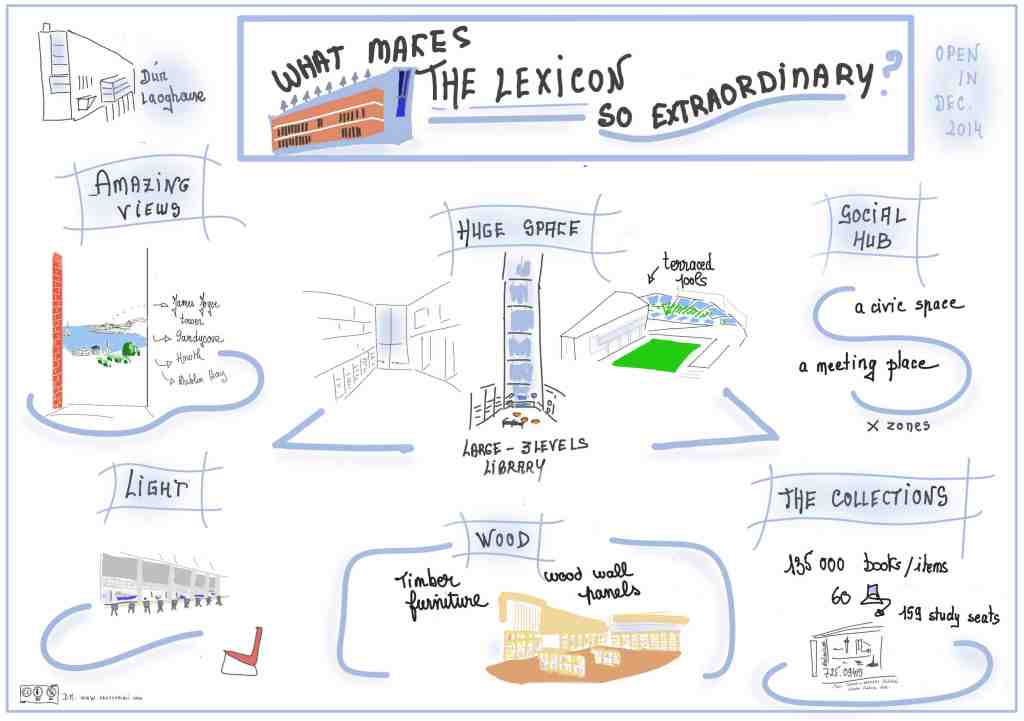 Dún
Laoghaire
WHAT MAKES
THE LEXICON
SO EXTRAORDINARY?
OPEN
IN
DEC.
2014
AMAZING
VIEWS
James Joyce
tower
Sandycove
Howth
Dublin Bay
HUGE SPACE
terraced
pools
LARGE - 3 LEVELS
LIBRARY
SOCIAL
HUB
a civic space
a meeting place
X zones
LIGHT
WOOD
Timber
furniture
wood wall
panels
THE COLLECTIONS
135 000 books/items
60
159 study seats
725.0949